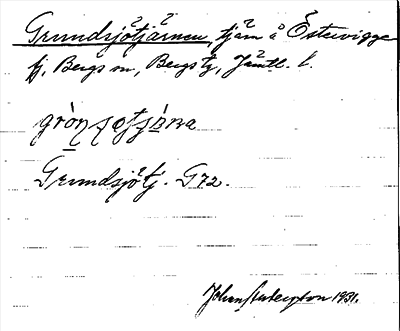 Grundsjötjärnen, tjärn å Östervigge
fj. Bergs sn, Bergs tg, Jämtl. l.
Grundsjötj. G72.
Johan 1931.